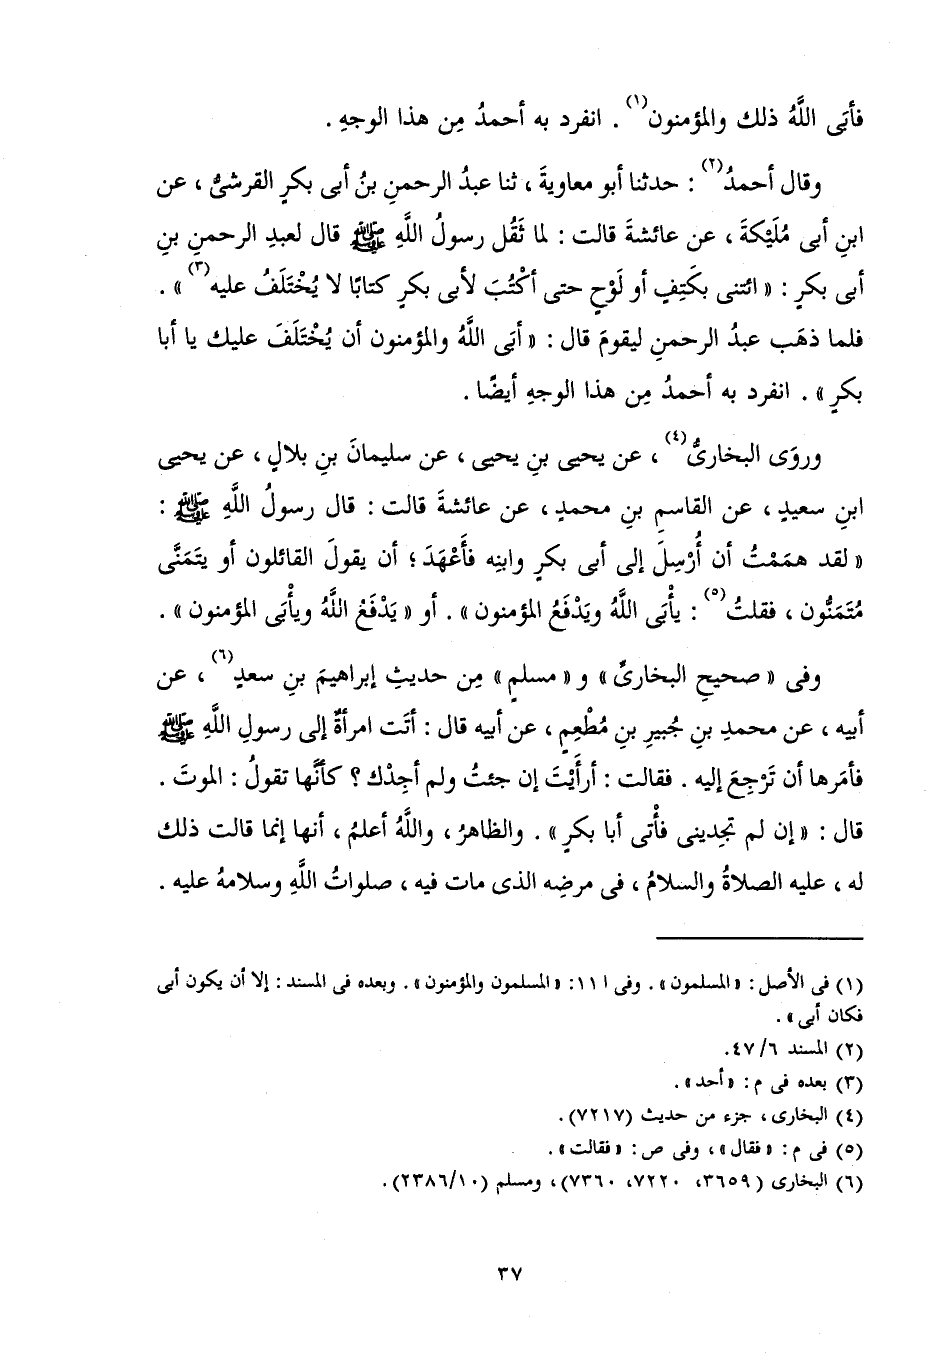 فأبَى اللَّهُ ذلك والمؤمنون(١) . انفرد به أحمدُ مِن هذا الوجهِ .
وقال أحمدُ(٢) : حدثنا أبو معاويةَ ، ثنا عبدُ الرحمنِ بنُ أبى بكرٍ القرشىُّ ، عن
ابنِ أبى مُلَيْكةَ ، عن عائشةَ قالت : لما ثَقُل رسولُ اللَّهِ ﷺ قال لعبدِ الرحمنِ بنِ
أبى بكرٍ : « ائتنى بكَتِفٍ أو لَوْحٍ حتى أكْتُبَ لأبى بكرٍ كتابًا لا يُخْتَلَفُ عليه(٣) » .
فلما ذهَب عبدُ الرحمنِ ليقومَ قال : « أبَى اللَّهُ والمؤمنون أن يُخْتَلَفَ عليك يا أبا
بكرٍ » . انفرد به أحمدُ مِن هذا الوجهِ أيضًا .
وروَى البخارىُّ(٤) ، عن يحيى بنِ يحيى ، عن سليمانَ بنِ بلالٍ ، عن يحيى
ابنِ سعيدٍ ، عن القاسمِ بنِ محمدٍ ، عن عائشةَ قالت : قال رسولُ اللَّهِ ﷺ :
« لقد همَمْتُ أن أُرْسِلَ إلى أبى بكرٍ وابنِه فأَعْهَدَ ؛ أن يقولَ القائلون أو يتَمَنَّى
مُتَمَنُّون ، فقلتُ(٥) : يأْبَى اللَّهُ ويَدْفَعُ المؤمنون » . أو « يَدْفَعُ اللَّهُ ويأْبَى المؤمنون » .
وفى « صحيحِ البخارىِّ » و « مسلمٍ » مِن حديثِ إبراهيمَ بنِ سعدٍ(٦) ، عن
أبيه ، عن محمدِ بنِ جُبيرِ بنِ مُطْعِمٍ ، عن أبيه قال : أتَت امرأةٌ إلى رسولِ اللَّهِ ﷺ
فأمَرها أن تَرْجِعَ إليه . فقالت : أرأَيْتَ إن جئتُ ولم أجِدْك ؟ كأنَّها تقولُ : الموتَ .
قال : « إن لم تجِدينى فأْتى أبا بكرٍ » . والظاهرُ ، واللَّهُ أعلمُ ، أنها إنما قالت ذلك
له ، عليه الصلاةُ والسلامُ ، فى مرضِه الذى مات فيه ، صلواتُ اللَّهِ وسلامهُ عليه .
(١) فى الأصل : « المسلمون » . وفى ا ١١ : « المسلمون والمؤمنون » . وبعده فى المسند : إلا أن يكون أبى
فكان أبى » .
(٢) المسند ٤٧/٦ .
(٣) بعده فى م : « أحد » .
(٤) البخارى ، جزء من حديث (٧٢١٧) .
(٥) فى م : « فقال » ، وفى ص : « فقالت » .
(٦) البخارى (٣٦٥٩، ٧٢٢٠، ٧٣٦٠) ، ومسلم (٢٣٨٦/١٠) .
٣٧